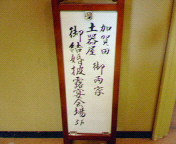 加賀田
土器屋
御両家
御結婚披露宴会場